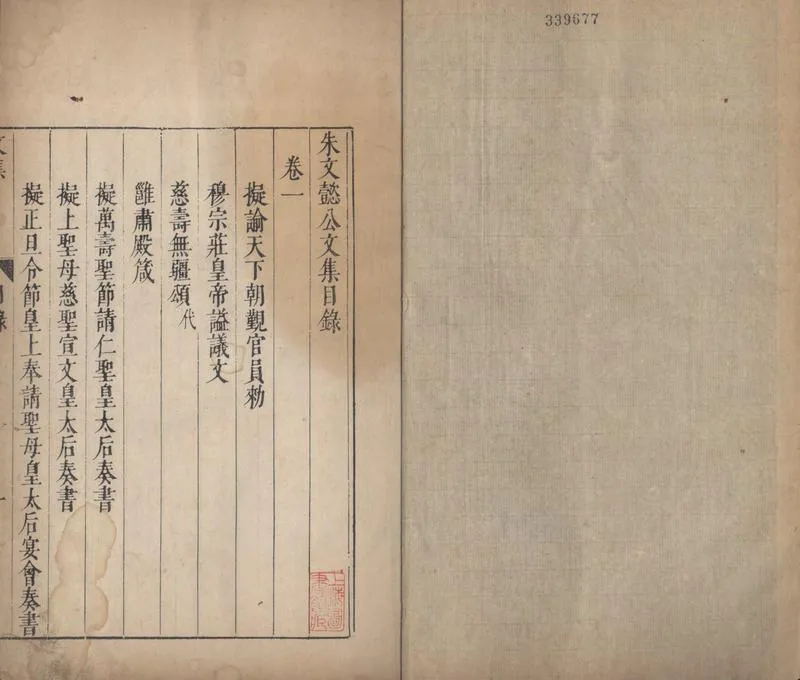 339677
朱文懿公文集目錄
卷一
擬諭天下朝覲官員勑
穆宗莊皇帝謚議文
慈壽無疆頌代
雝肅殿箴
擬萬壽聖節請仁聖皇太后奏書
擬上聖母慈聖宣文皇太后奏書
擬正旦令節皇上奉請聖母皇太后宴會奏書